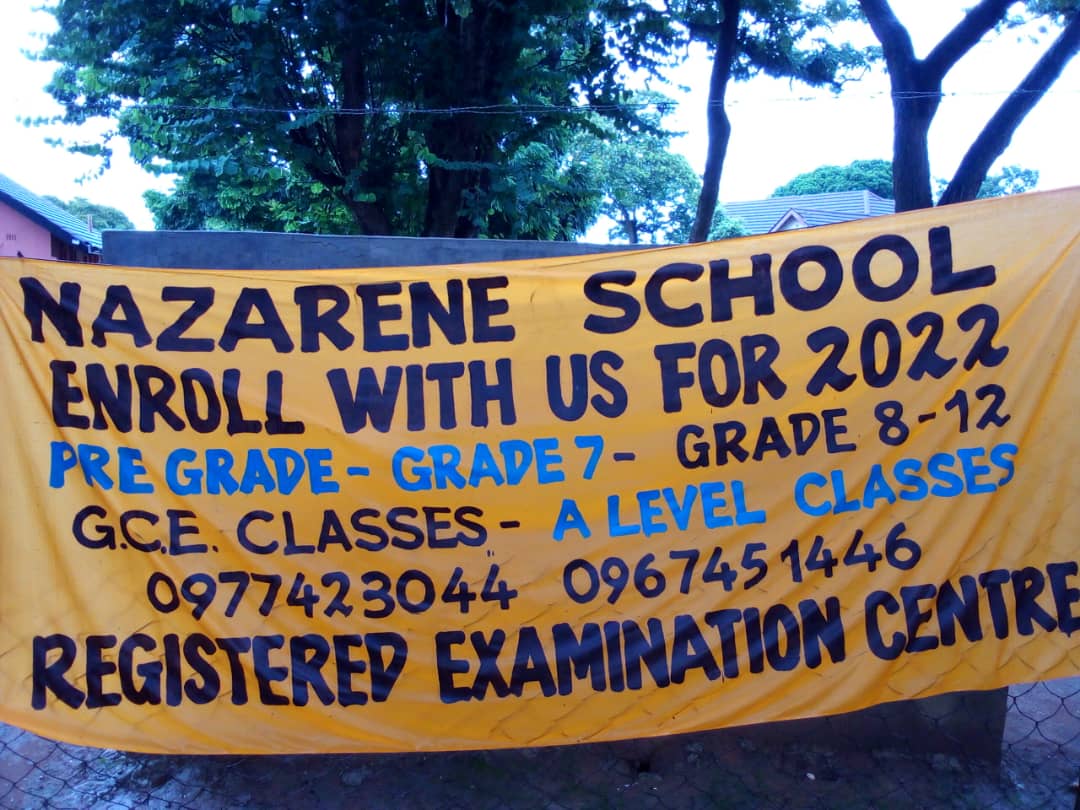 NAZARENE SCHOOL
ENROLL WITH US FOR 2022
PRE GRADE - GRADE 7 - GRADE 8-12
G.C.E. CLASSES - A LEVEL CLASSES
0977423044 0967451446
REGISTERED EXAMINATION CENTRE